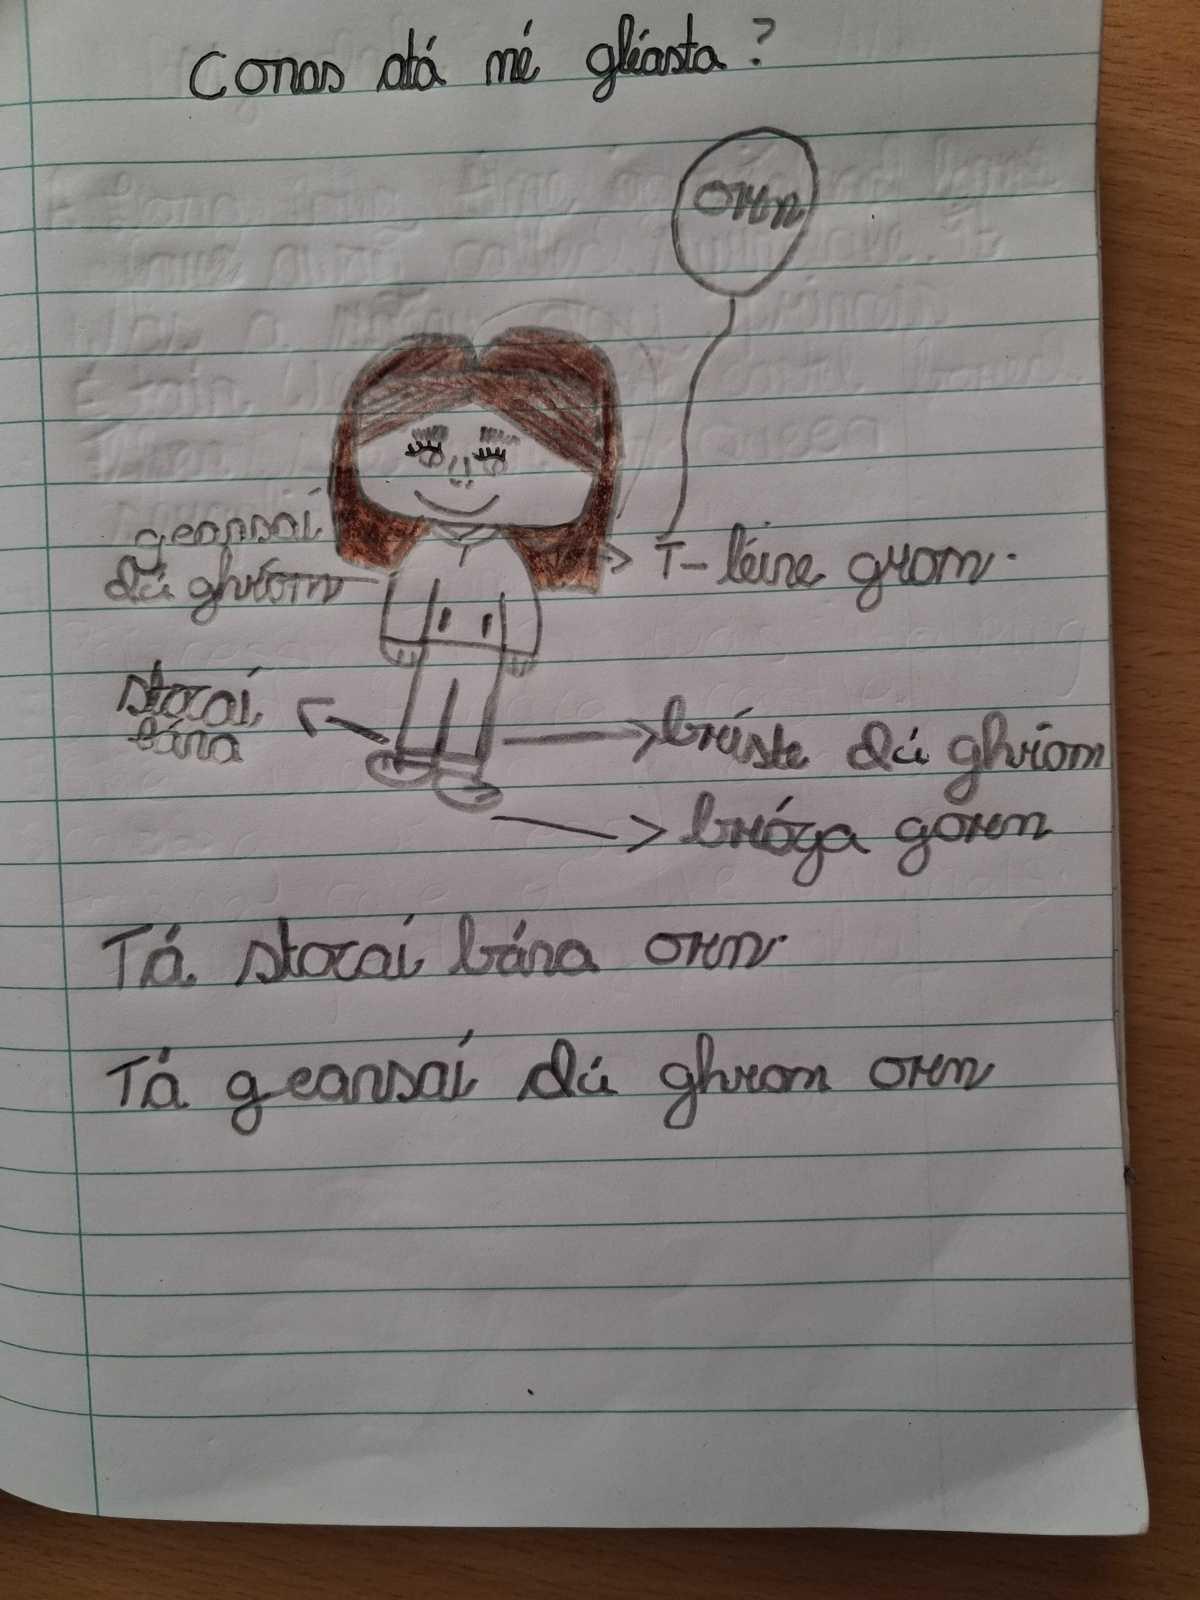 Conas atá mé gléasta?
orm
geansaí
dú ghriom
T-léine grom.
stocaí
bána
bríste dú ghriom
bróga gorm
Tá stocaí bána orm.
Tá geansaí dú ghrom orm